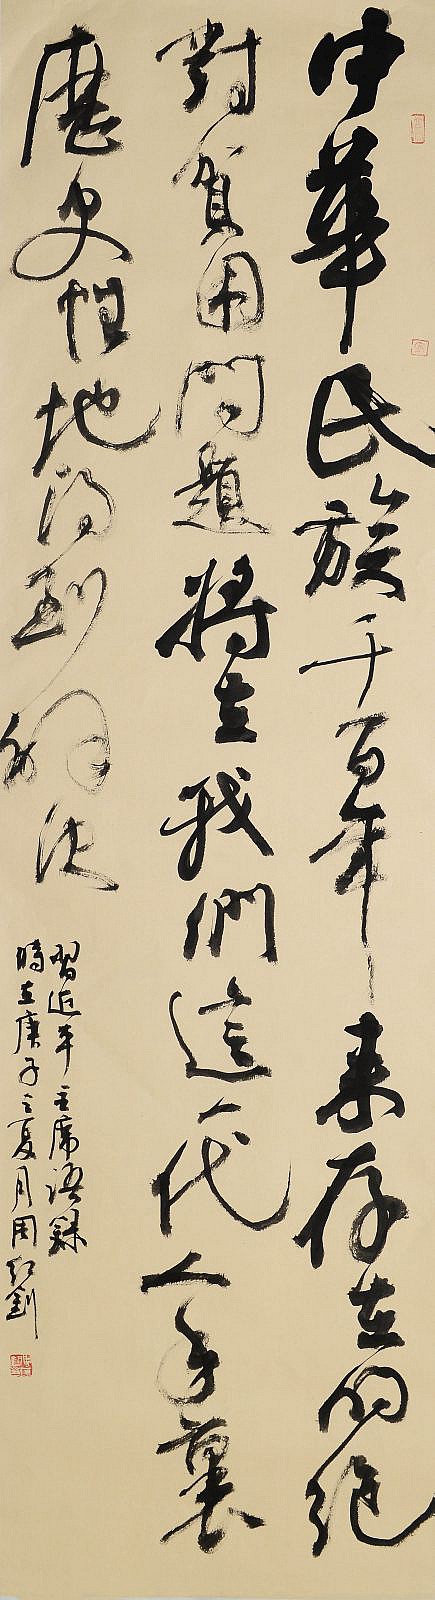 中華民族千百年来存在的絶
對貧困問題將在我們這一代人手裏
歷史性地得到解決
習近平主席語録
時在庚子之夏月周紅劍